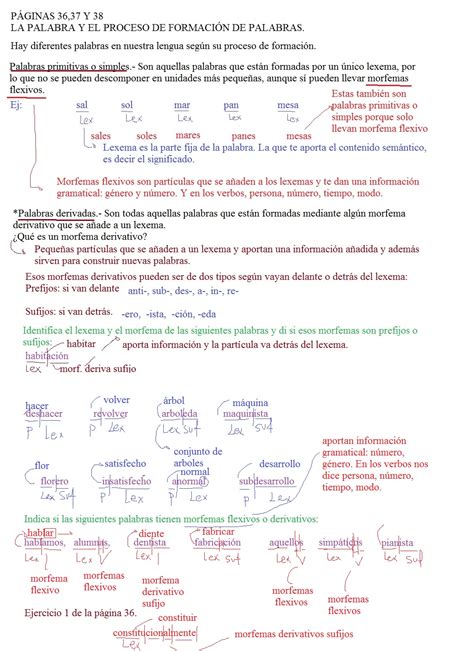 PÁGINAS 36,37 Y 38
LA PALABRA Y EL PROCESO DE FORMACIÓN DE PALABRAS.
Hay diferentes palabras en nuestra lengua según su proceso de formación.
Palabras primitivas o simples.- Son aquellas palabras que están formadas por un único lexema, por
lo que no se pueden descomponer en unidades más pequeñas, aunque sí pueden llevar morfemas
flexivos.
Estas también son
palabras primitivas o
simples porque solo
llevan morfema flexivo
Ej: sal sol mar pan mesa
Lex Lex Lex Lex Lex
sales soles mares panes mesas
Lexema es la parte fija de la palabra. La que te aporta el contenido semántico,
es decir el significado.
Morfemas flexivos son partículas que se añaden a los lexemas y te dan una información
gramatical: género y número. Y en los verbos, persona, número, tiempo, modo.
*Palabras derivadas.- Son todas aquellas palabras que están formadas mediante algún morfema
derivativo que se añade a un lexema.
¿Qué es un morfema derivativo?
Pequeñas partículas que se añaden a un lexema y aportan una información añadida y además
sirven para construir nuevas palabras.
Esos morfemas derivativos pueden ser de dos tipos según vayan delante o detrás del lexema:
Prefijos: si van delante anti-, sub-, des-, a-, in-, re-
Sufijos: si van detrás. -ero, -ista, -ción, -eda
Identifica el lexema y el morfema de las siguientes palabras y di si esos morfemas son prefijos o
sufijos:
habitar aporta información y la partícula va detrás del lexema.
habitación
Lex morf. deriva sufijo
hacer volver árbol máquina
deshacer revolver arboleda maquinista
P Lex P Lex Lex Suf Lex Suf
conjunto de
arboles
flor satisfecho normal desarrollo
florero insatisfecho anormal subdesarrollo
Lex Suf P Lex P Lex P Lex
aportan información
gramatical: número,
género. En los verbos nos
dice persona, número,
tiempo, modo.
Indica si las siguientes palabras tienen morfemas flexivos o derivativos:
hablar diente fabricar
hablamos, alumnas, dentista fabricación aquellos simpáticas pianista
Lex Lex Lex Lex Suf Lex Lex Lex Suf
morfema
flexivos
morfemas
flexivos
morfema
derivativo
sufijo
morfemas
flexivos
morfema
flexivos
Ejercicio 1 de la página 36.
constituir
constitucionalmente morfemas derivativos sufijos
Lex